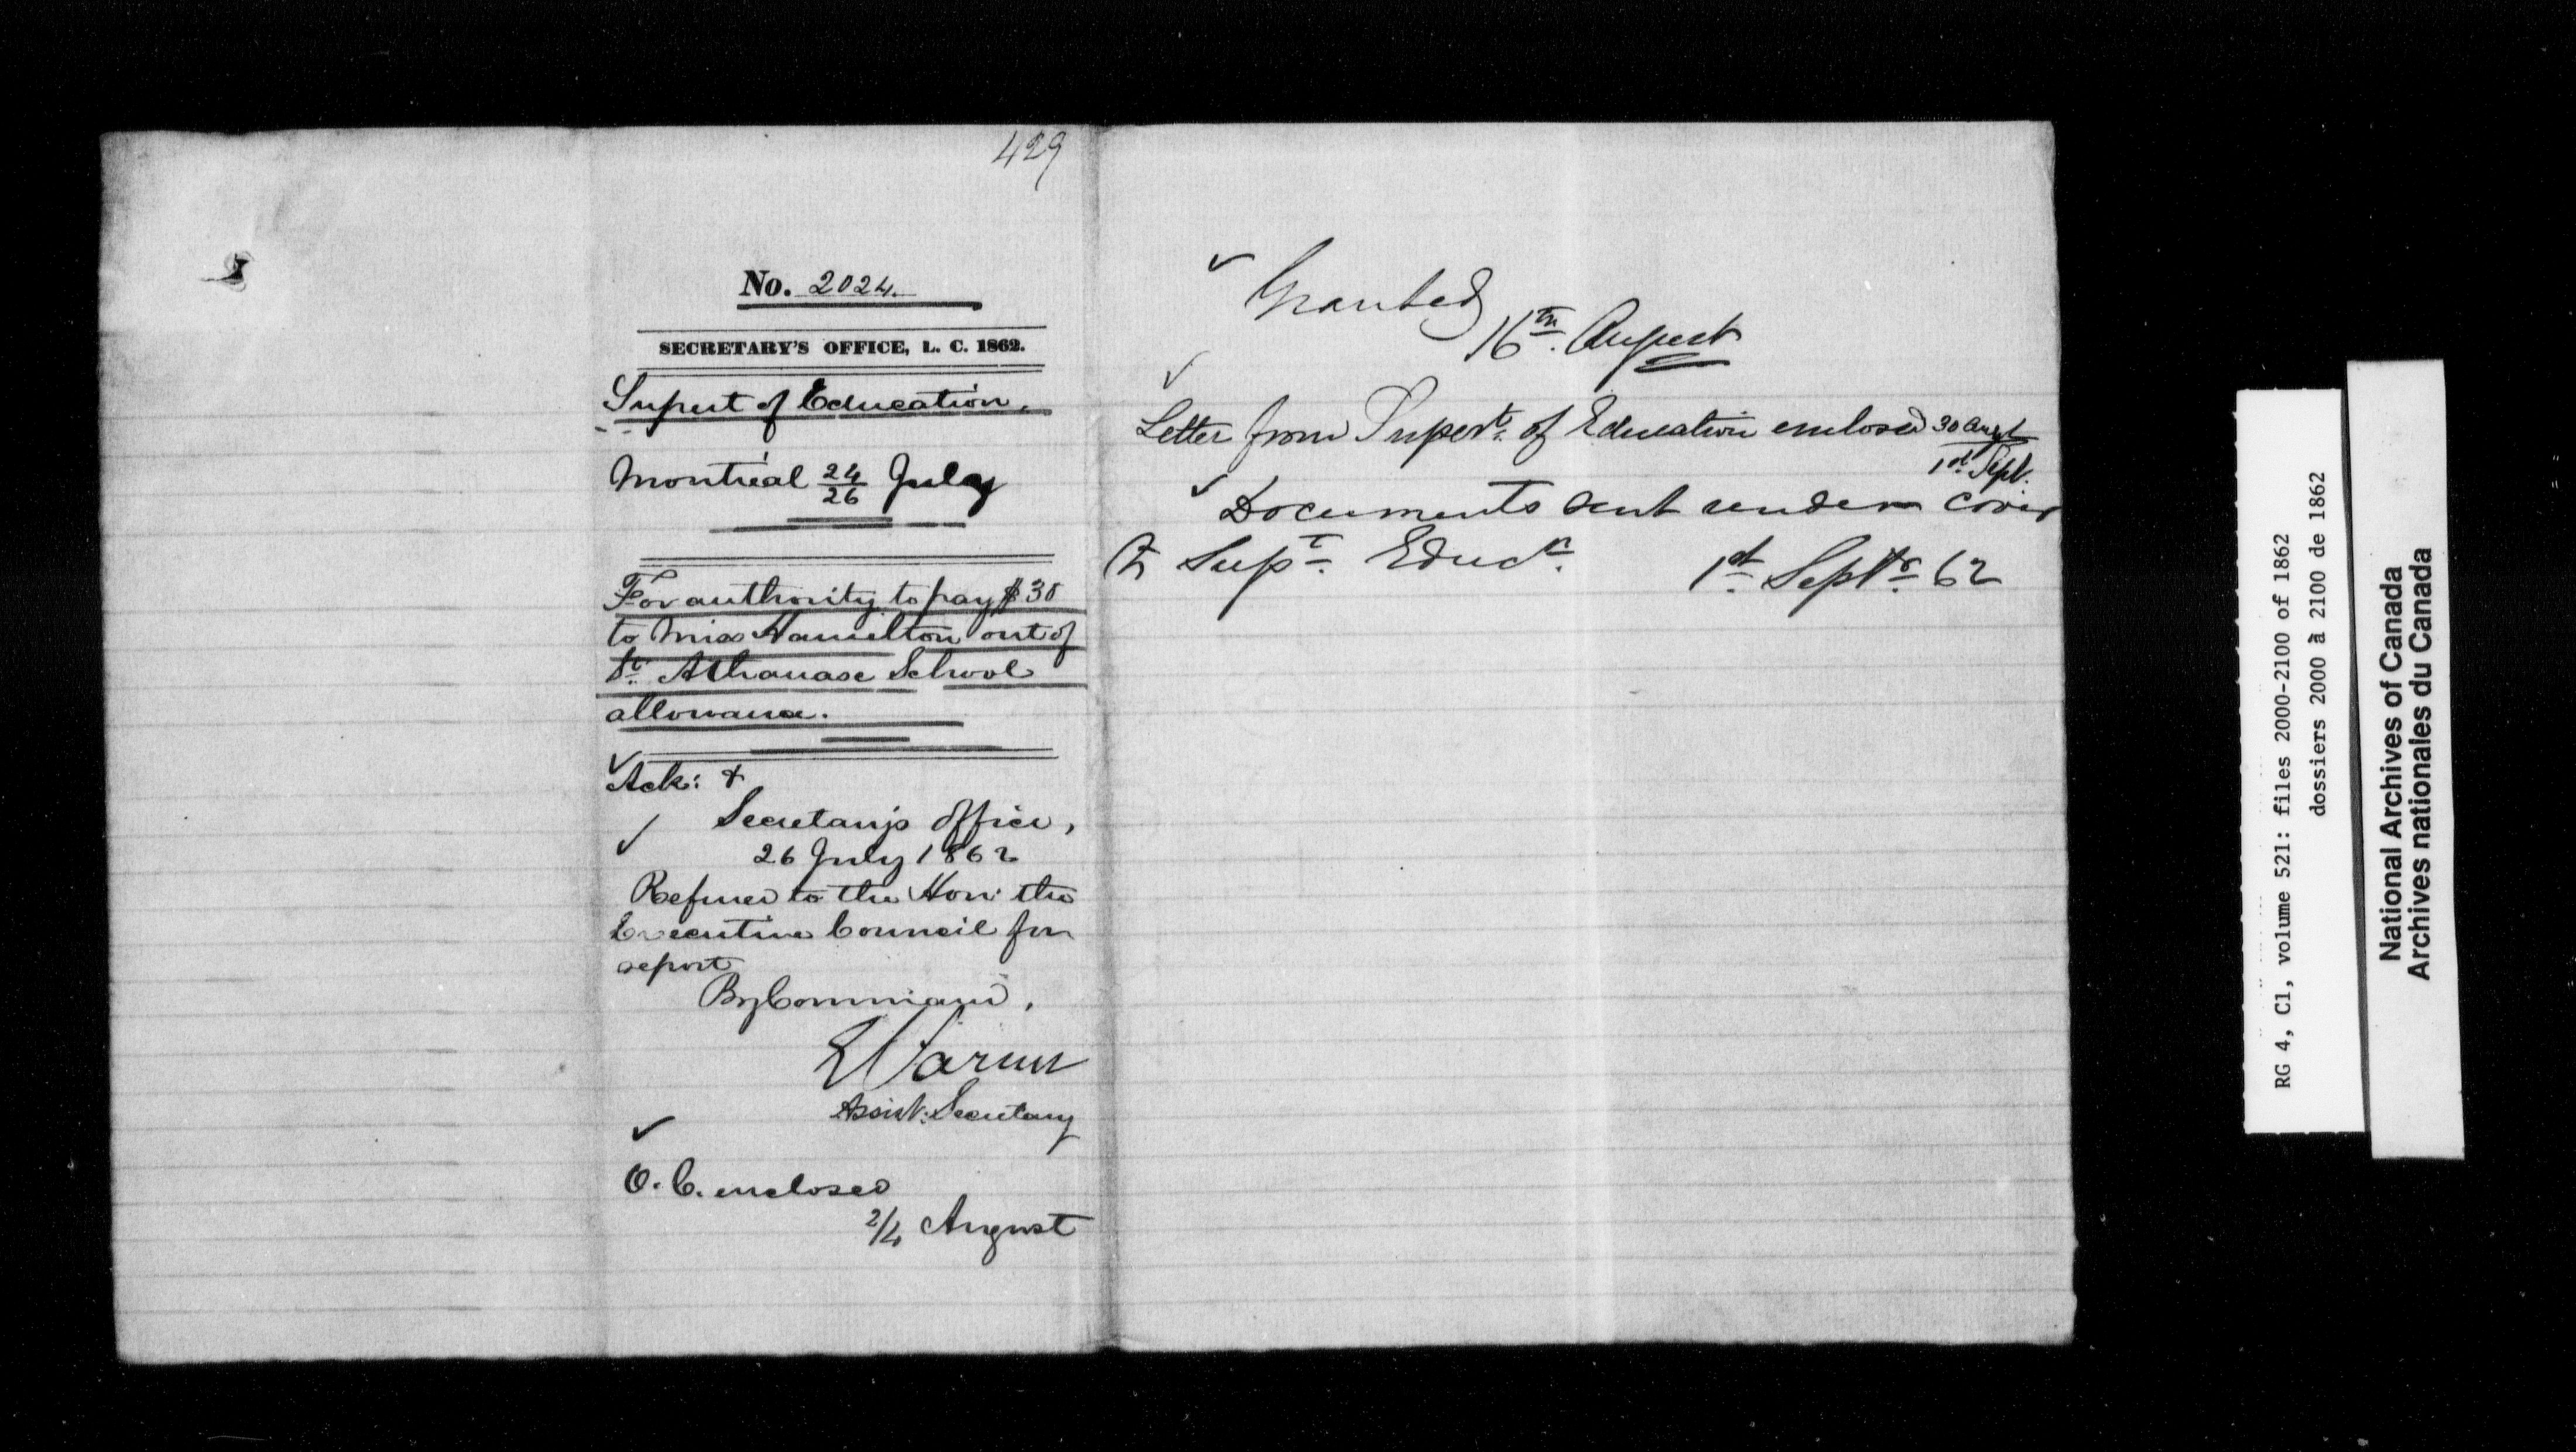 429
No. 2024.
SECRETARY'S OFFICE, L. C. 1862.
Supert of Education.
Montreal 24/26 July
For authority to pay $30
to Miss Hamilton out of
St. Athanase School
allowance.
Ack: +
Secretary's Office,
26 July 1862
Referred to the Hon: the
Executive Council for
report
By Command,
Assist: Secretary
O. C. enclosed
2/4 August
Granted
16th August
Letter from Supert. of Education enclosed 30 Augt
1st Sept.
Documents sent under cover
to Supt. Educn.
1st Septr. 62
RG 4, C1, volume 521: files 2000-2100 of 1862
dossiers 2000 à 2100 de 1862
National Archives of Canada
Archives nationales du Canada